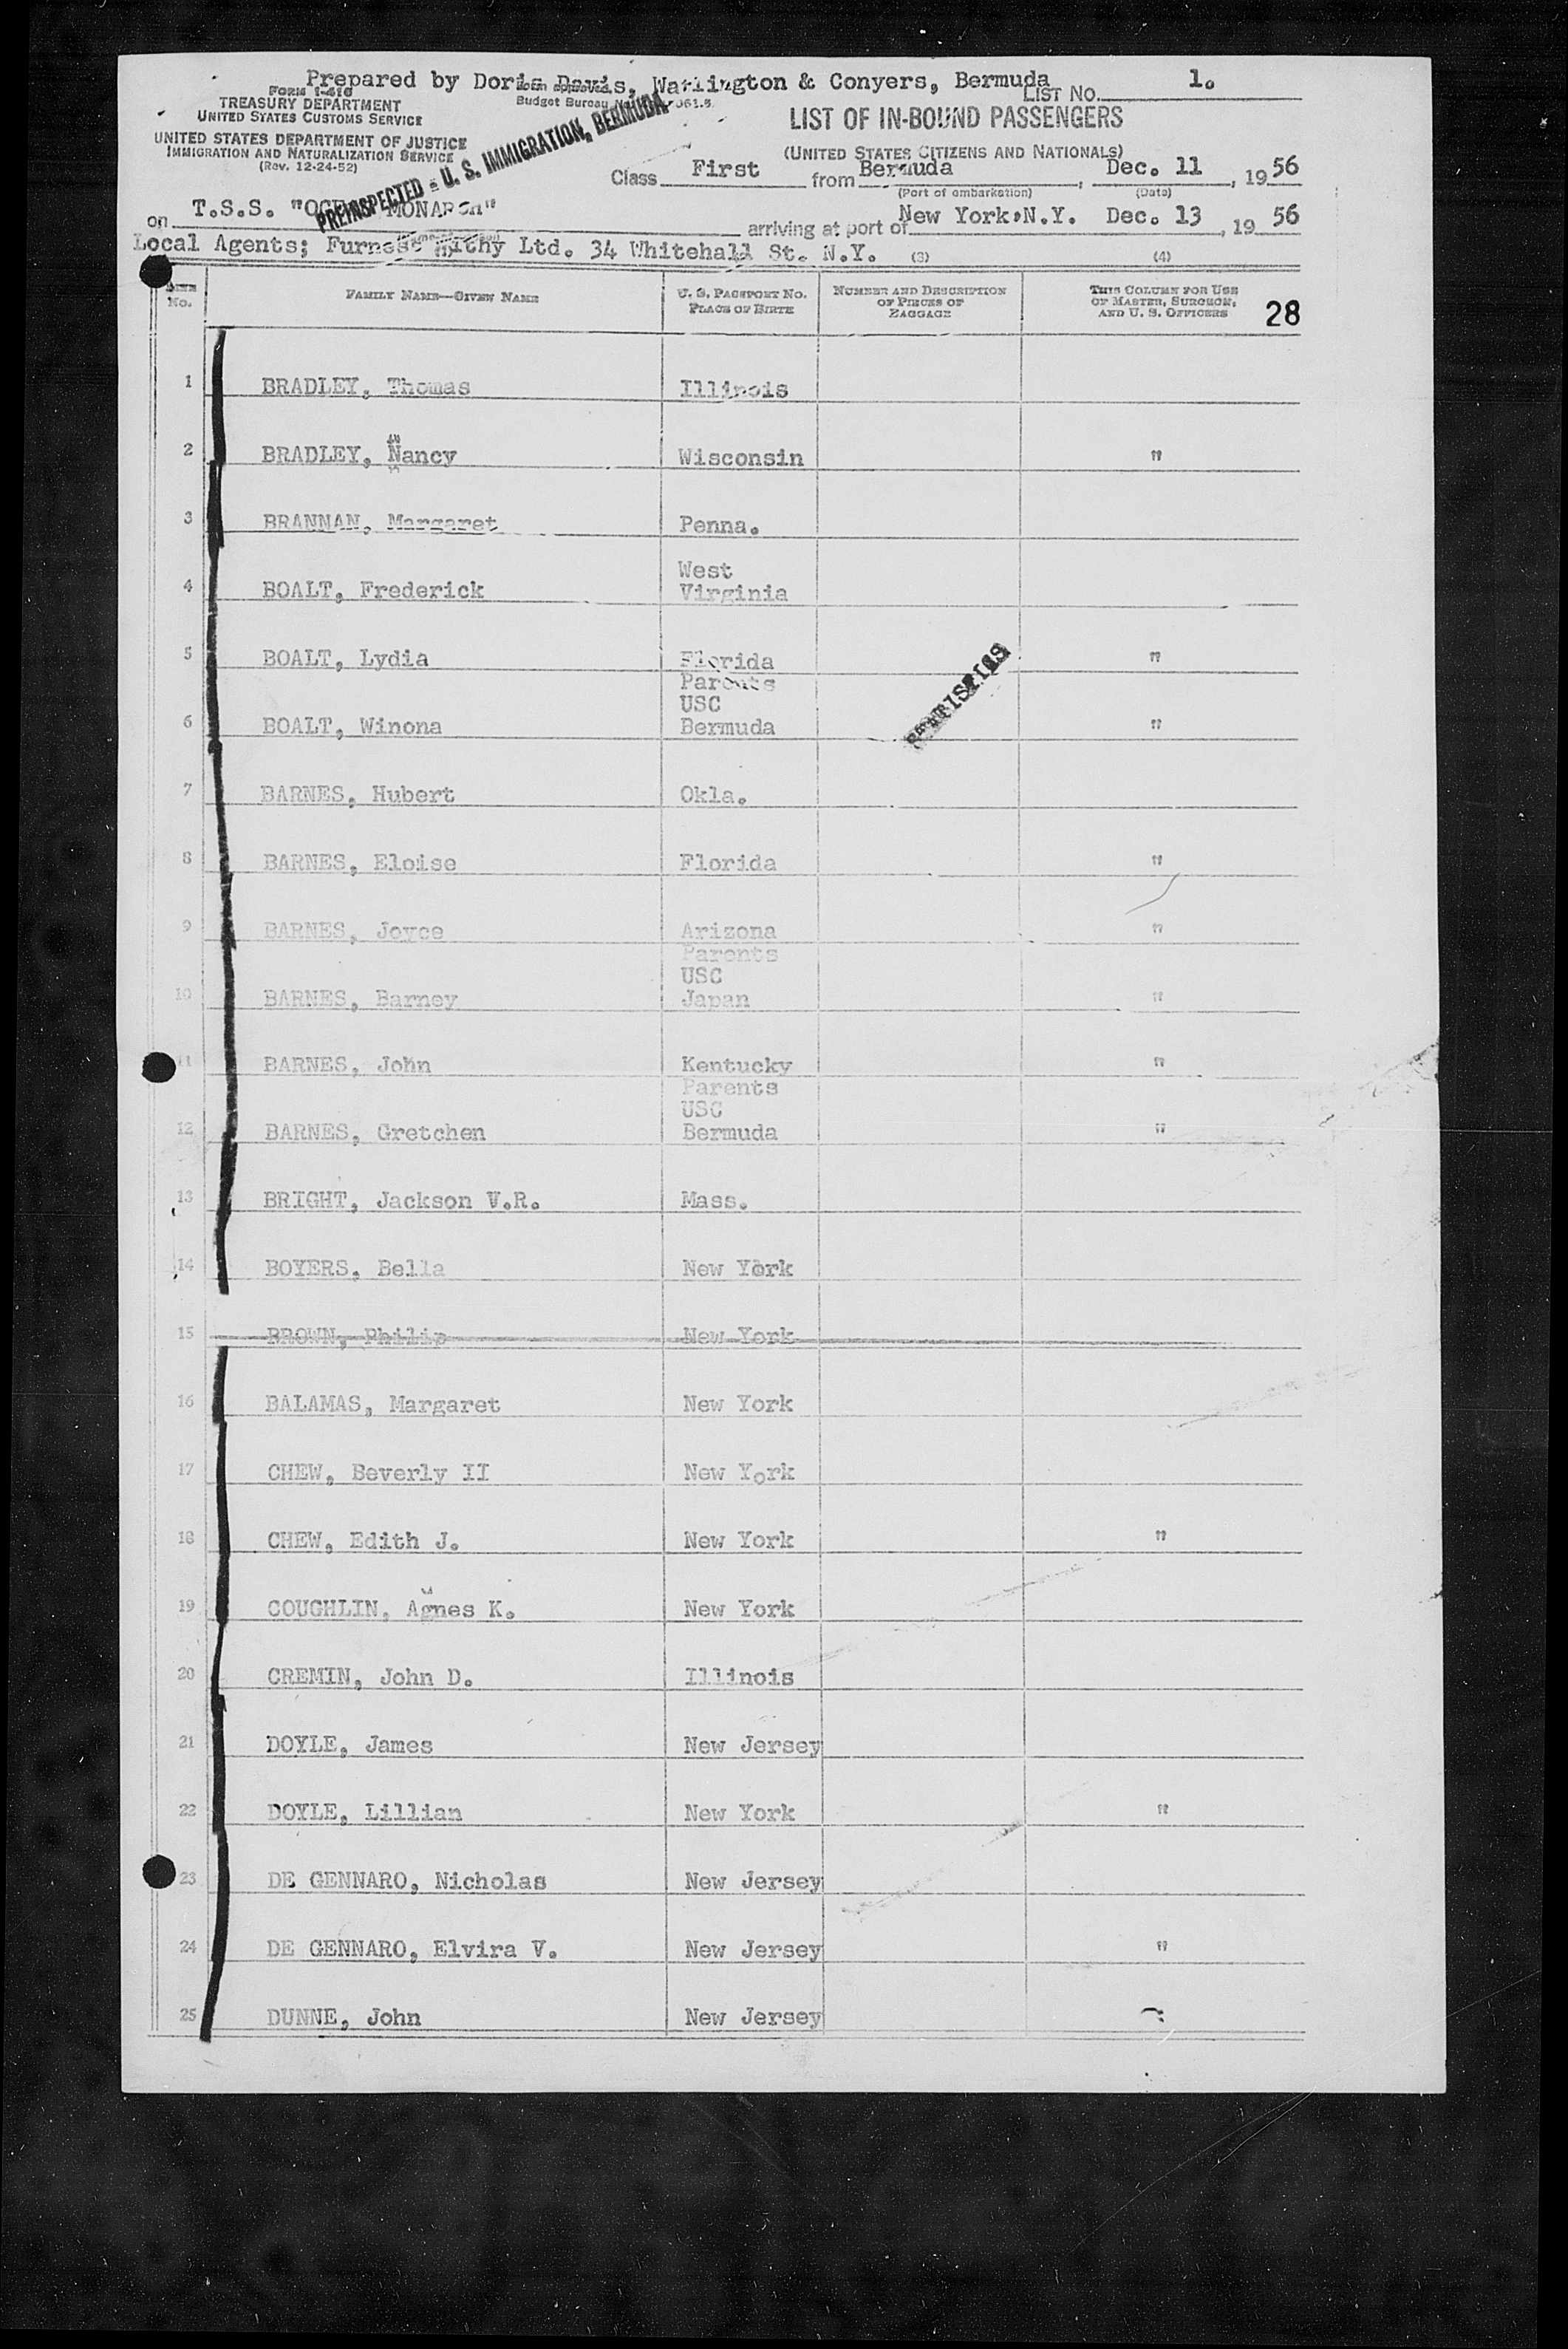 Prepared by Doris Davis, Watlington & Conyers, Bermuda
LIST NO. 1.
FORM I-418
TREASURY DEPARTMENT
UNITED STATES CUSTOMS SERVICE
UNITED STATES DEPARTMENT OF JUSTICE
IMMIGRATION AND NATURALIZATION SERVICE
(Rev. 12-24-52)
Form approved.
Budget Bureau No.
PREINSPECTED - U. S. IMMIGRATION, BERMUDA
LIST OF IN-BOUND PASSENGERS
(UNITED STATES CITIZENS AND NATIONALS)
Class First from Bermuda, Dec. 11, 1956
(Port of embarkation) (Date)
on T.S.S. "OCEAN MONARCH" arriving at port of New York, N.Y. Dec. 13, 1956
Local Agents; Furness Withy Ltd. 34 Whitehall St. N.Y.
(3) (4)
LINE No.
FAMILY NAME—GIVEN NAME
U. S. PASSPORT NO. PLACE OF BIRTH
NUMBER AND DESCRIPTION OF PIECES OF BAGGAGE
THIS COLUMN FOR USE OF MASTER, SURGEON, AND U. S. OFFICERS
28
1 BRADLEY, Thomas Illinois
2 BRADLEY, Nancy Wisconsin "
3 BRANNAN, Margaret Penna.
4 BOALT, Frederick West Virginia
5 BOALT, Lydia Florida "
Parents
USC
6 BOALT, Winona Bermuda "
7 BARNES, Hubert Okla.
8 BARNES, Eloise Florida "
9 BARNES, Joyce Arizona "
Parents
USC
10 BARNES, Barney Japan "
11 BARNES, John Kentucky "
Parents
USC
12 BARNES, Gretchen Bermuda "
13 BRIGHT, Jackson V.R. Mass.
14 BOYERS, Bella New York
15 BROWN, Philip New York
16 BALAMAS, Margaret New York
17 CHEW, Beverly II New York
18 CHEW, Edith J. New York "
19 COUGHLIN, Agnes K. New York
20 CREMIN, John D. Illinois
21 DOYLE, James New Jersey
22 DOYLE, Lillian New York "
23 DE GENNARO, Nicholas New Jersey
24 DE GENNARO, Elvira V. New Jersey "
25 DUNNE, John New Jersey